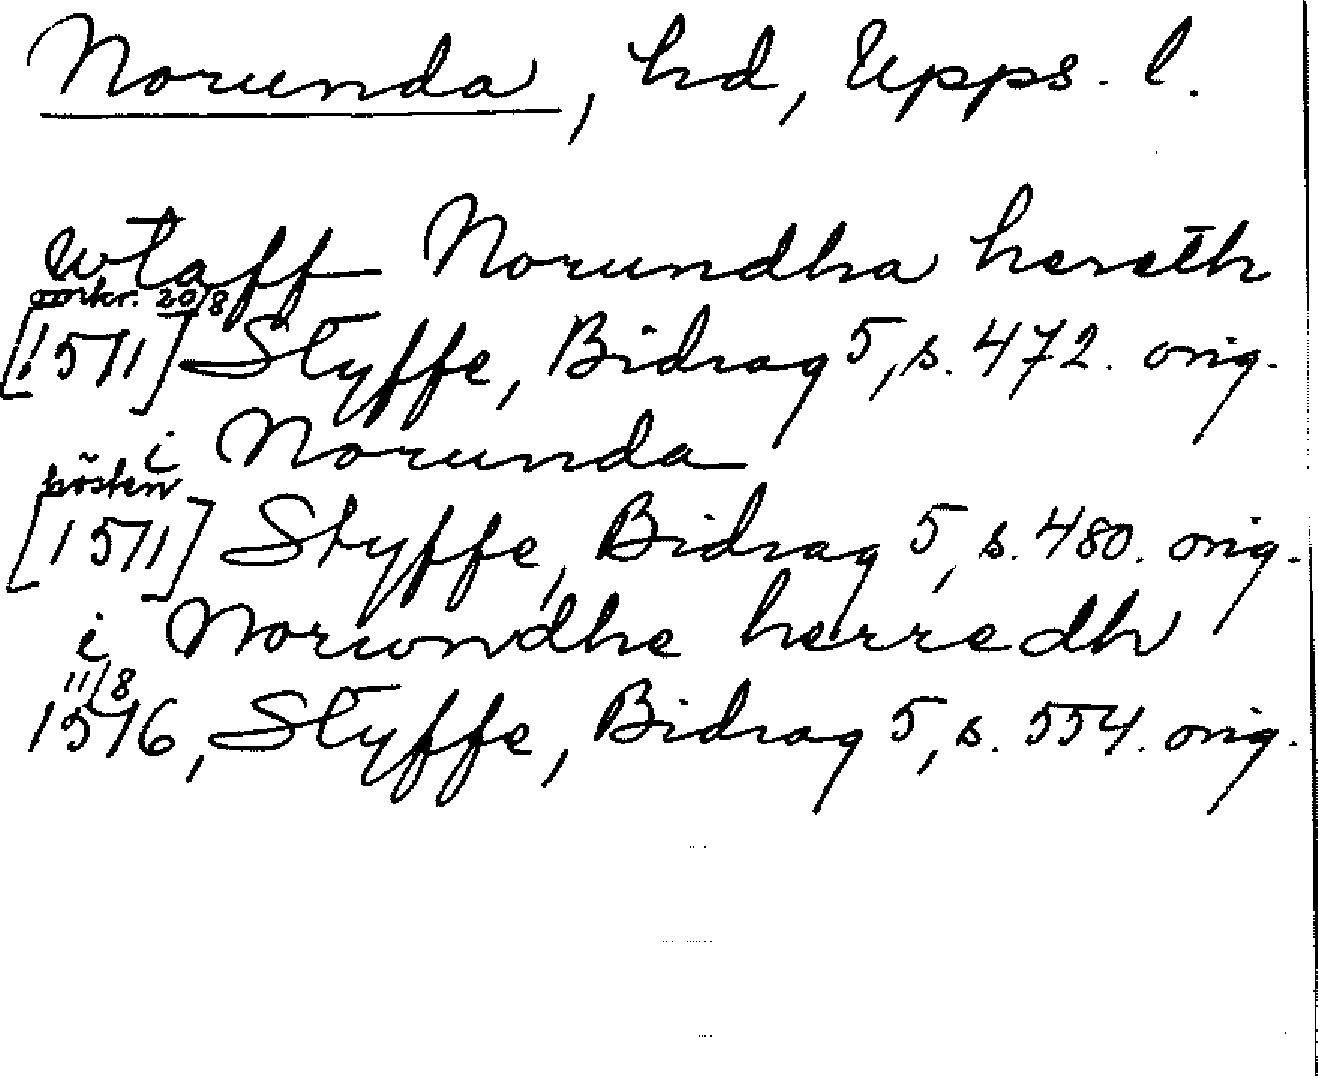 Norunda, hd, Upps. l.
wtaff Norundha hereth
omkr. 20/8
[1511] Styffe, Bidrag 5, s. 472. orig.
i Norunda
hösten
[1511] Styffe, Bidrag 5, s. 480. orig.
i Norwndhe herredh
11/8
1516, Styffe, Bidrag 5, s. 554. orig.